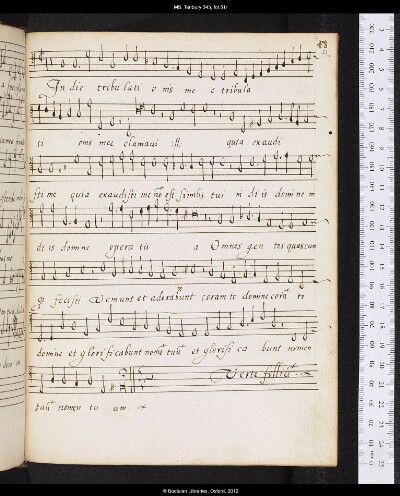 MS. Tenbury 343, fol.51r
In die tribulati o nis me e tribula
ti onis mee clamavi :||: quia exaudi
sti me quia exaudisti me nō est similis tui in di is domine in
di is domne opera tu a Omnes gen tes quascun
qȝ fecisti Venient et adorabunt coram te domine corā te
domne et glorificabunt nomē tuū et glorifi ca bunt nomen
Verte folium
tuū nomen tu um
© Bodleian Libraries, Oxford, 2012